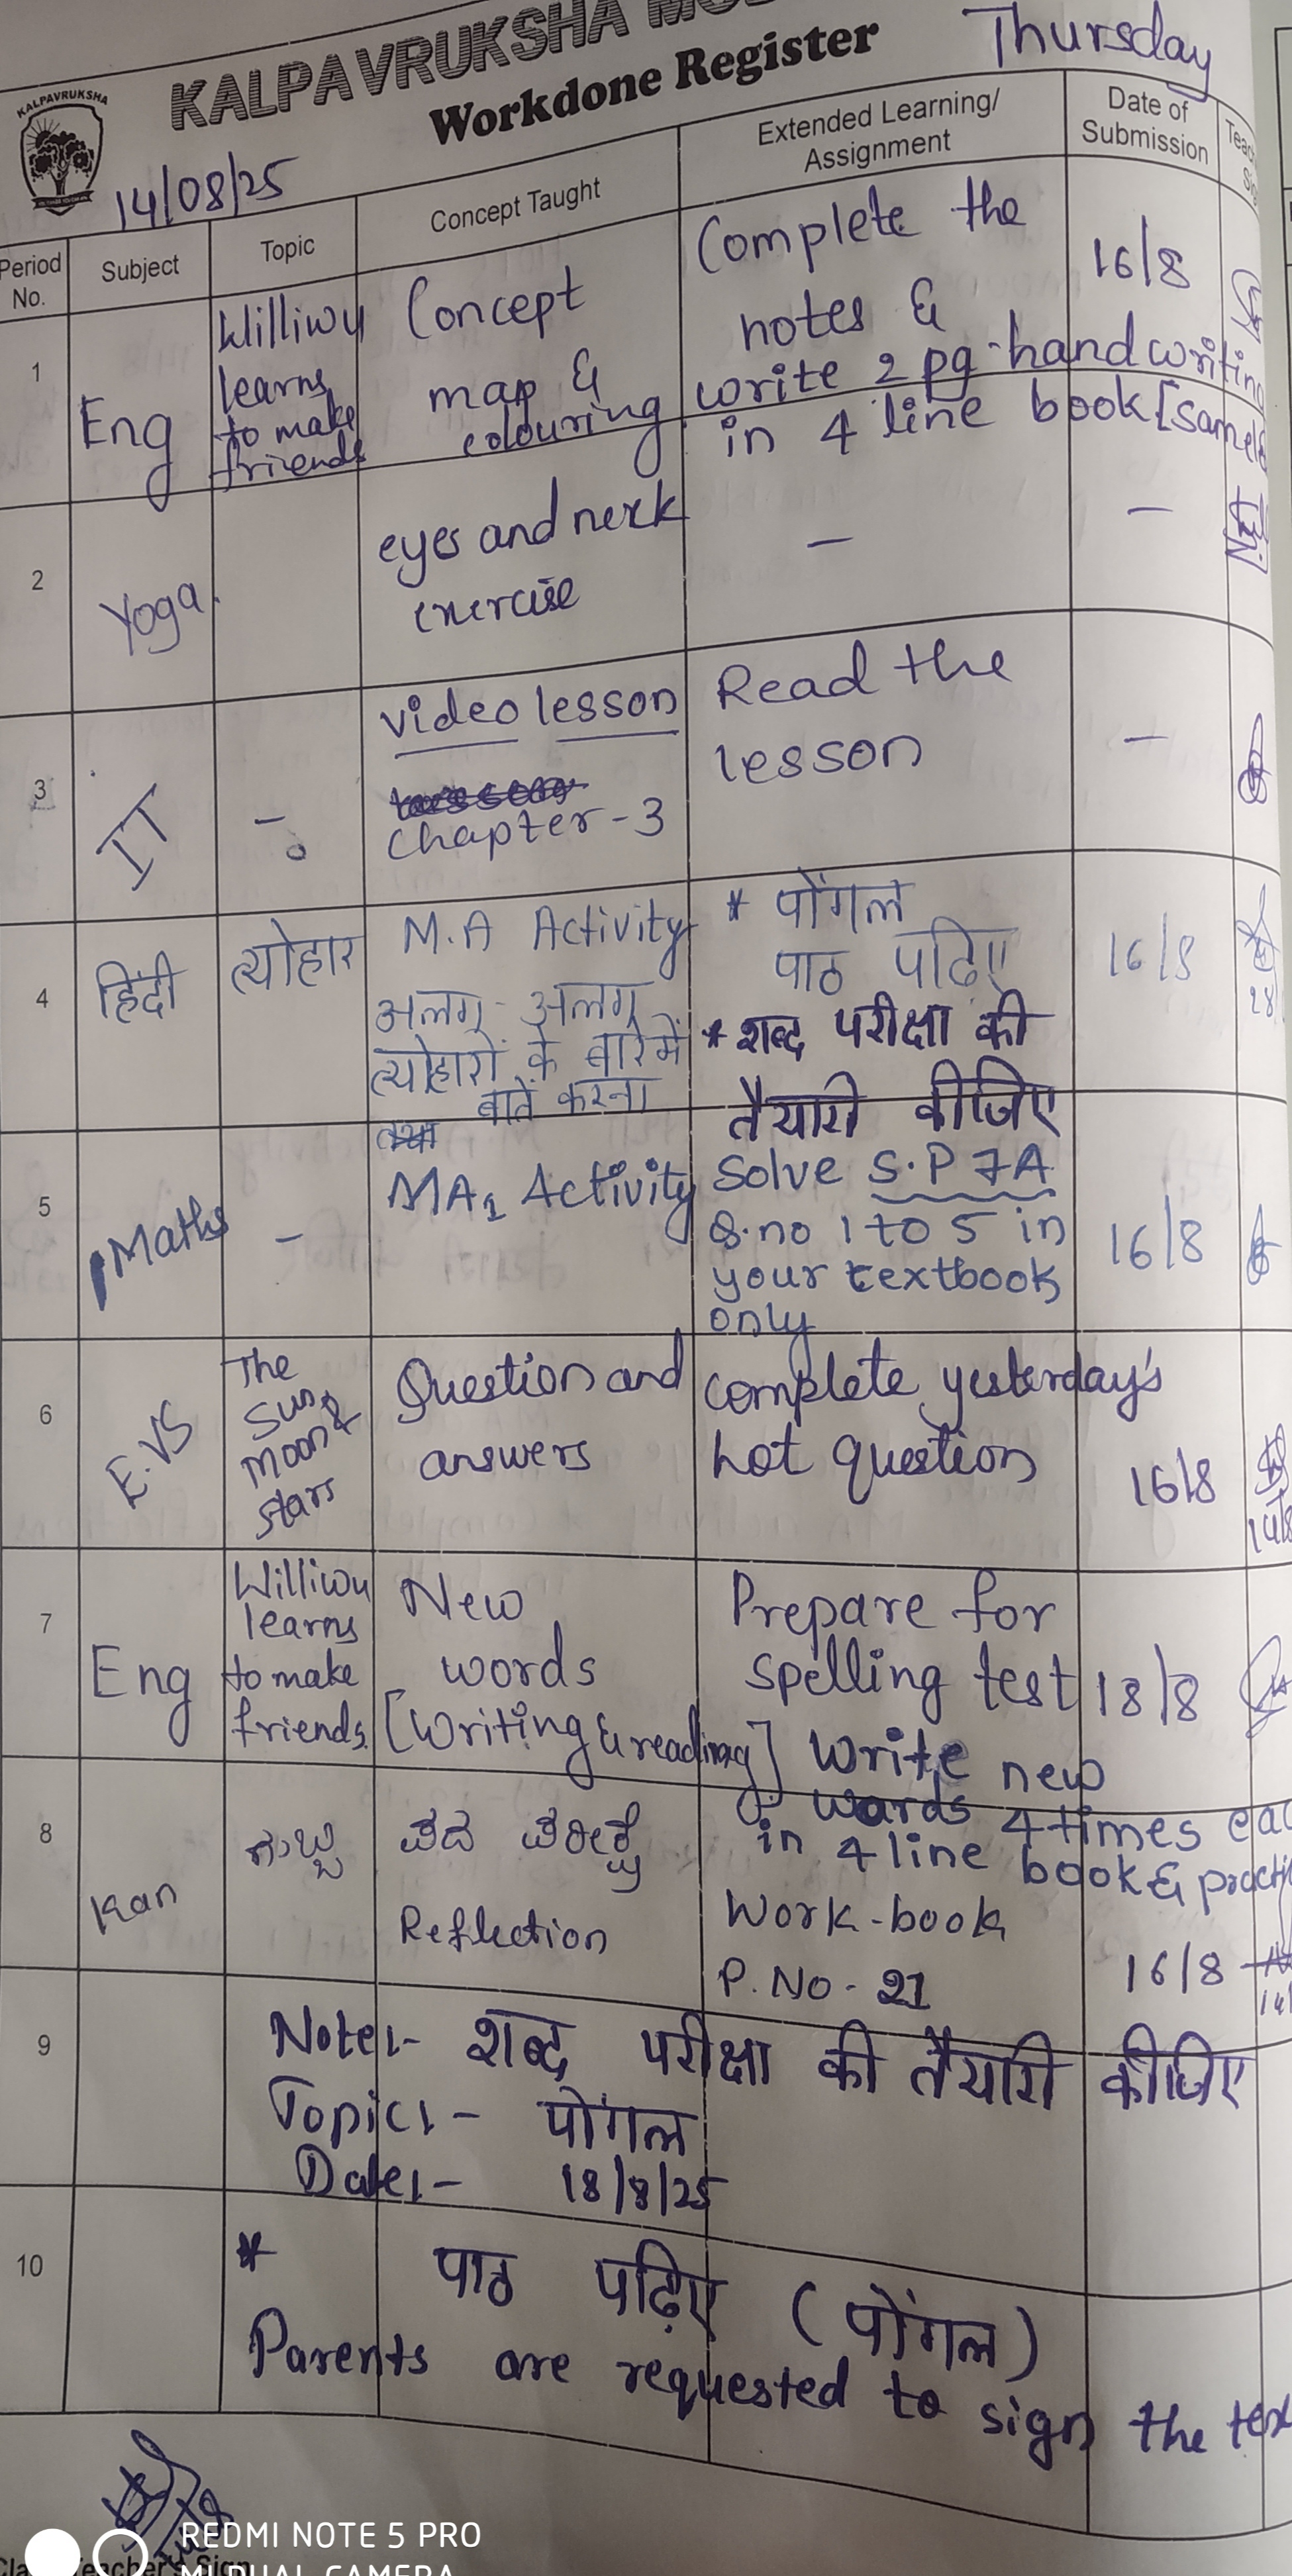 KALPAVRUKSHA
Workdone Register
Thursday
KALPAVRUKSHA
14/08/25
Period No.
Subject
Topic
Concept Taught
Extended Learning/
Assignment
Date of
Submission
1
Eng
Williwu
learns
to make
friends
Concept
map &
colouring
Complete the
notes &
write 2 pg handwriting
in 4 line book
16/8
2
Yoga.
eyes and neck
exercise
—
—
3
IT
-
video lesson
chapter-3
Read the
lesson
—
4
हिंदी
त्योहार
M.A Activity
अलग - अलग
त्योहारों के बारे में
बातें करना
* पोंगल
पाठ पढ़िए
* शब्द परीक्षा की
तैयारी कीजिए
16/8
5
Maths
-
MA1 Activity
Solve S.P 7A
Q.no 1 to 5 in
your textbook
only
16/8
6
E.VS
The
Sun,
moon &
stars
Question and
answers
complete yesterday's
hot question
16/8
14/8
7
Eng
Williwu
learns
to make
friends.
New
words
[Writing & reading]
Prepare for
spelling test
Write new
words 4 times
in 4 line book &
18/8
8
Kan
ಪದ ಪರೀಕ್ಷೆ
Reflection
Work-book
P.No- 21
16/8
9
Note:- शब्द परीक्षा की तैयारी कीजिए
Topic:- पोंगल
Date:- 18/8/25
10
* पाठ पढ़िए (पोंगल)
Parents are requested to sign the
REDMI NOTE 5 PRO
MI DUAL CAMERA